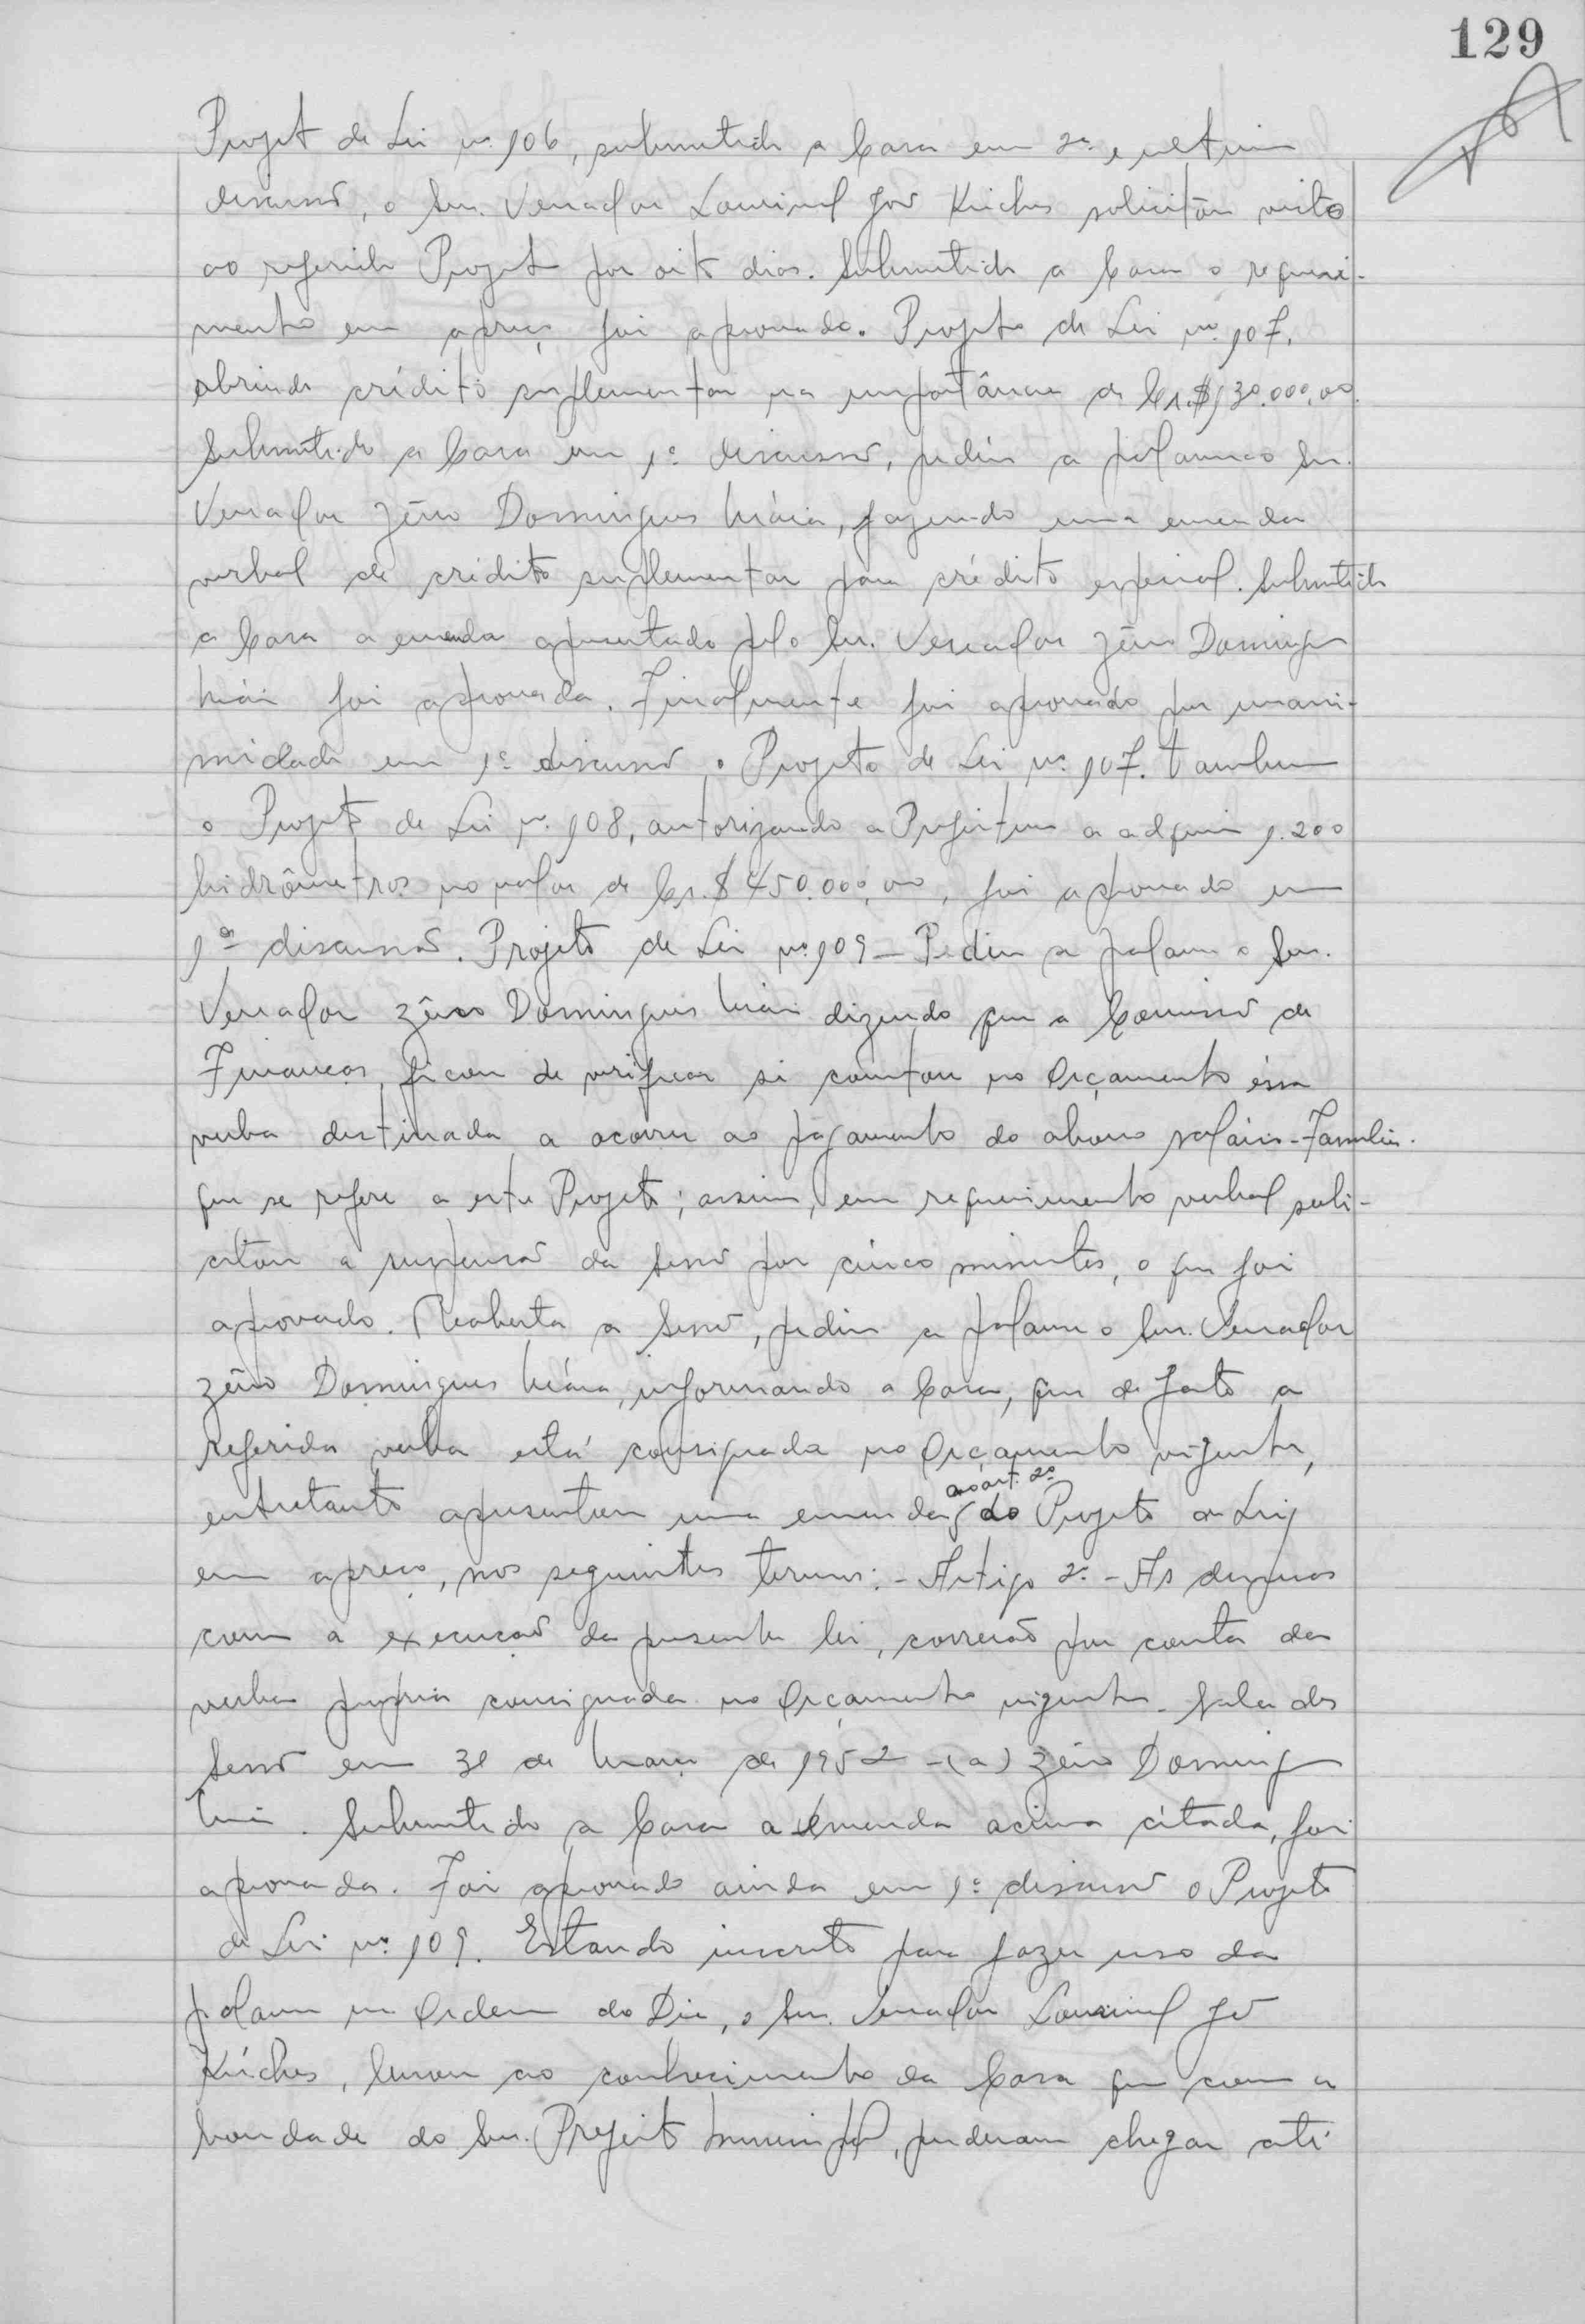 129
Projeto de Lei nº 106, submetido a Casa em 2ª e ultima
discussão, o Snr. Vereador Lourival José Kirches solicitou vista
ao referido Projeto por oito dias. Submetido a Casa o requeri-
mento em apreço foi aprovado. Projeto de Lei nº 107,
abrindo crédito suplementar na importância de Cr.$ 130.000,00.
Submetido a Casa em 1ª discussão, pediu a palavra o Snr.
Vereador Zeno Domingues, fazendo uma emenda
verbal de crédito suplementar para crédito especial. Submetida
a Casa a emenda apresentada pelo Snr. Vereador Zeno Domingues
foi aprovada. Finalmente foi aprovado por unani-
midade em 1ª discussão o Projeto de Lei nº 107. Tambem
o Projeto de Lei nº 108, autorizando a Prefeitura a adquirir 1.200
hidrômetros no valor de Cr.$ 450.000,00, foi aprovado em
1ª discussão. Projeto de Lei nº 109 - Pediu a palavra o Snr.
Vereador Zeno Domingues dizendo que a Comissão de
Finanças, ficou de verificar si constou no Orçamento éssa
verba destinada a ocorrer ao pagamento do abono salário-Familia.
que se refere a este Projeto; assim, em requerimento verbal soli-
citou a suspensão da Sessão por cinco minutos, o que foi
aprovado. Reaberta a Sessão, pediu a palavra o Snr. Vereador
Zeno Domingues, informando a Casa, que de fato a
referida verba está consignada no Orçamento vigente,
entretanto apresentou uma emenda ao art. 2º do Projeto de Lei
em apreço, nos seguintes termos: - Artigo 2º - As despesas
com a execução da presente lei, correrão por conta da
verba propria consignada no Orçamento vigente. Sala das
Sessão em 31 de Março de 1952 - (a) Zeno Domingues
Submetido a Casa a emenda acima citada, foi
aprovada. Foi aprovado ainda em 1ª discussão o Projeto
de Lei nº 109. Estando inscrito para fazer uso da
palavra na Ordem do Dia, o Snr. Vereador Lourival José
Kirches, levou ao conhecimento da Casa que com a
bondade do Snr. Prefeito Municipal, puderam chegar até